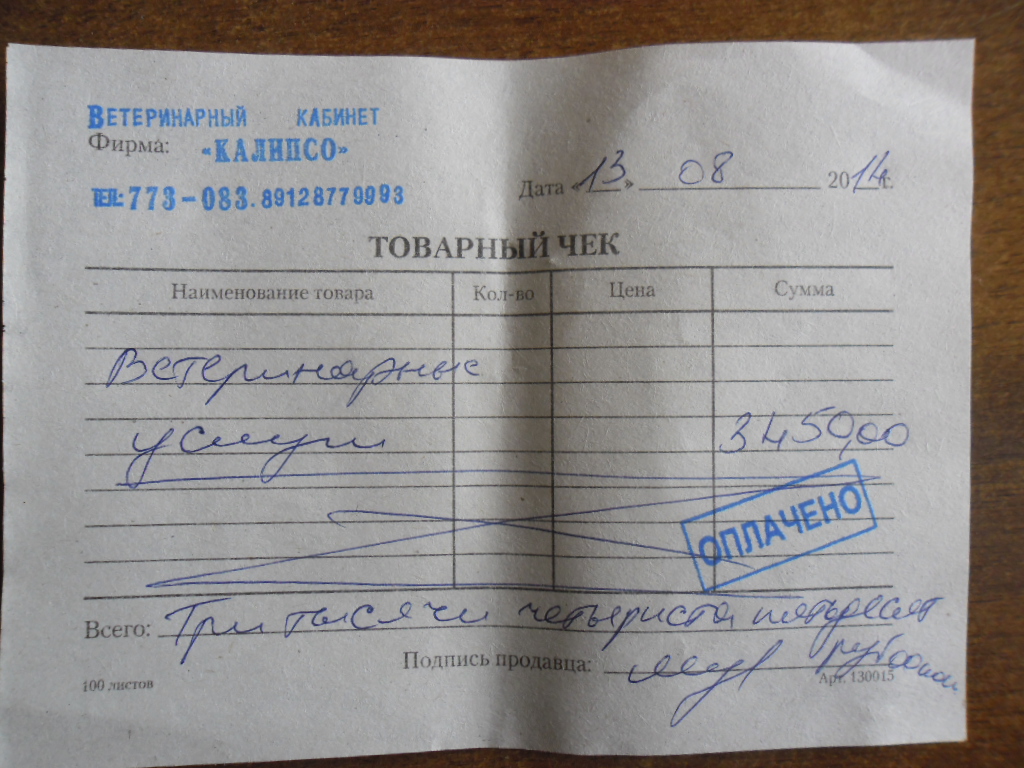 ВЕТЕРИНАРНЫЙ КАБИНЕТ
Фирма: «КАЛИПСО»
ТЕЛ: 773-083. 89128779993
Дата «13» 08 2014г.
ТОВАРНЫЙ ЧЕК
Наименование товара Кол-во Цена Сумма
Ветеринарные
услуги 3450,00
ОПЛАЧЕНО
Всего: Три тысячи четыриста пятьдесят
рублей
Подпись продавца:
100 листов Арт. 130015